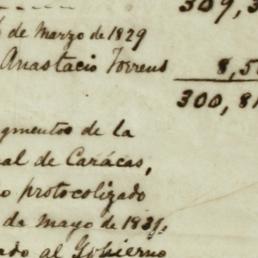 309,3
6 de Marzo de 1829
Anastacio Torrens 8,50
300,81
gmentos de la
al de Carácas,
o protocolizado
de mayo de 1831,
ado al Gobierno